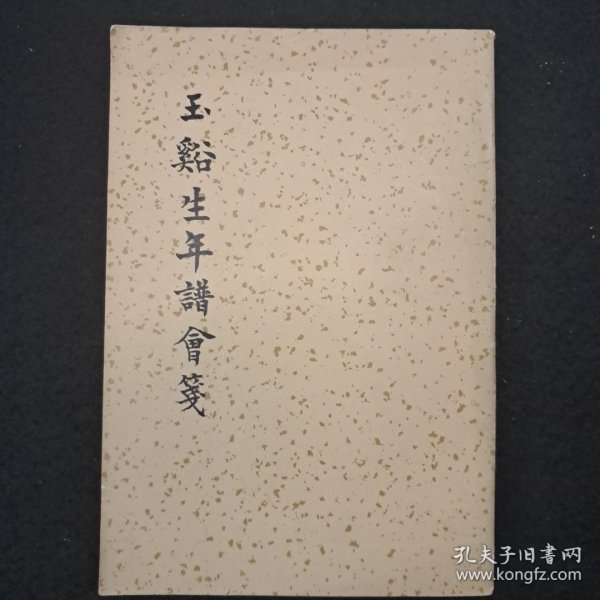 玉谿生年譜會箋
孔夫子旧书网
www.kongfz.com